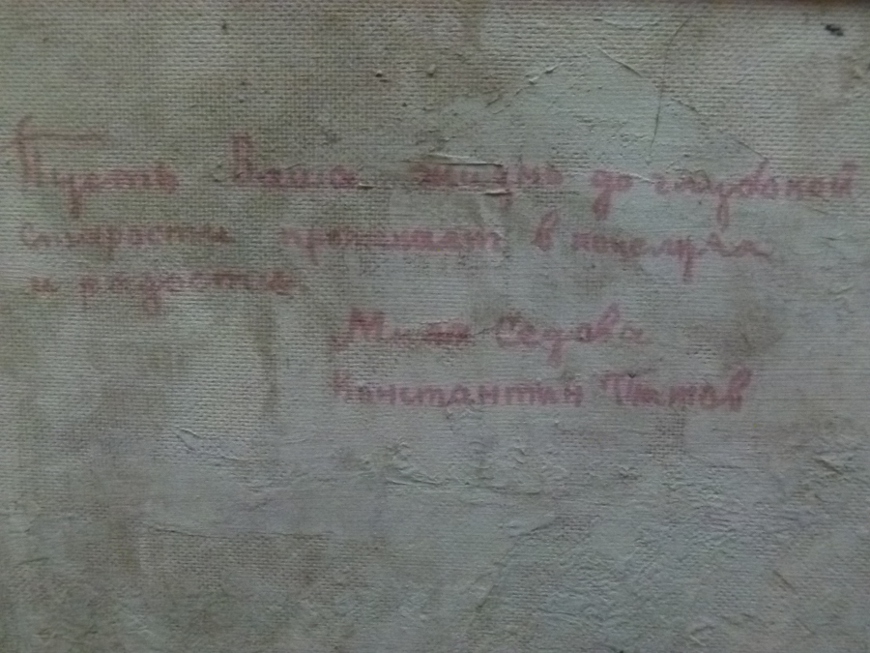 Пусть Ваша жизнь до глубокой
старости протекает в поцелуях
и радости.
Седова
Константин Титов